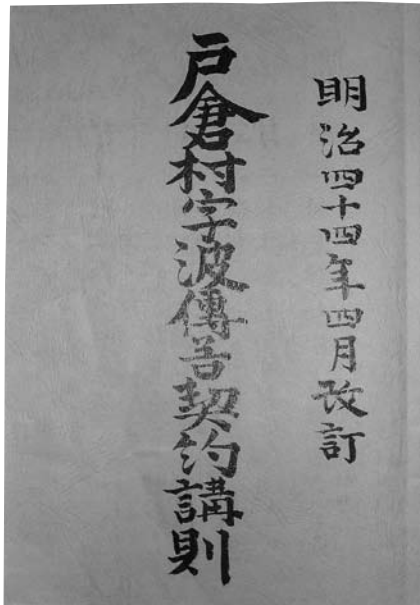 明治四十四年四月改訂
戸倉村字波傳谷契約講則